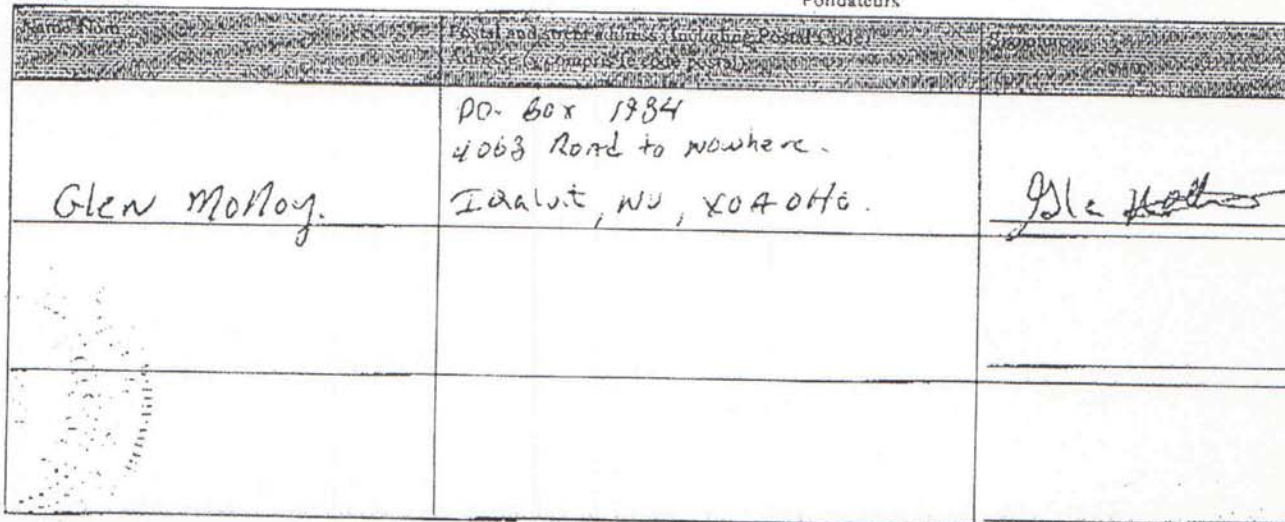 Fondateurs
Name Nom
Postal and street address (Including Postal Code)
Adresse (y compris le code postal)
Signature
P.O. Box 1984
4063 Road to Nowhere.
Glen Molloy.
Iqaluit, NU, X0A 0H0.